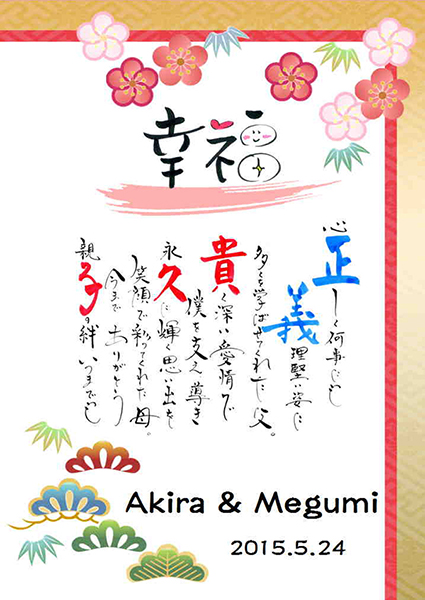 幸福
心正しく何事にも
義理堅い姿に
多くを学ばせてくれた父。
貴く深い愛情で
僕を支え導き
永久に輝く思い出を
笑顔で彩ってくれた母。
今まで ありがとう
親子の絆 いつまでも
Akira & Megumi
2015.5.24